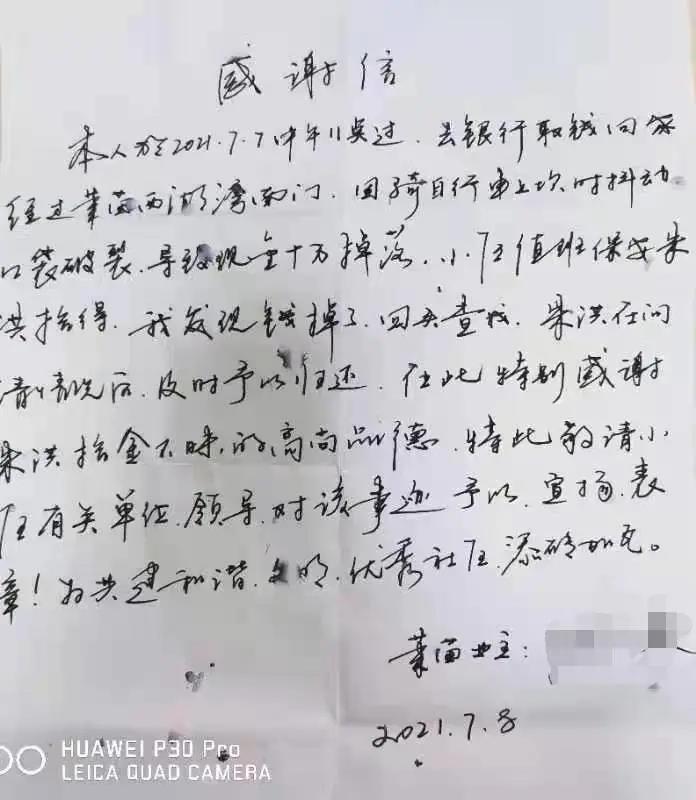 感谢信
本人于2021.7.7中午11点过，去银行取钱回家
经过莱茵西湖湾南门，因骑自行车上坎时抖动
口袋破裂，导致现金十万掉落，小区值班保安朱
洪拾得，我发现钱掉了，回头查找，朱洪在问
清情况后，及时予以归还，在此特别感谢
朱洪拾金不昧的高尚品德，特此敬请小
区有关单位，领导，对该事迹予以，宣扬，表
章！为共建和谐，文明，优秀社区，添砖加瓦。
莱茵业主：
2021.7.8
HUAWEI P30 Pro
LEICA QUAD CAMERA